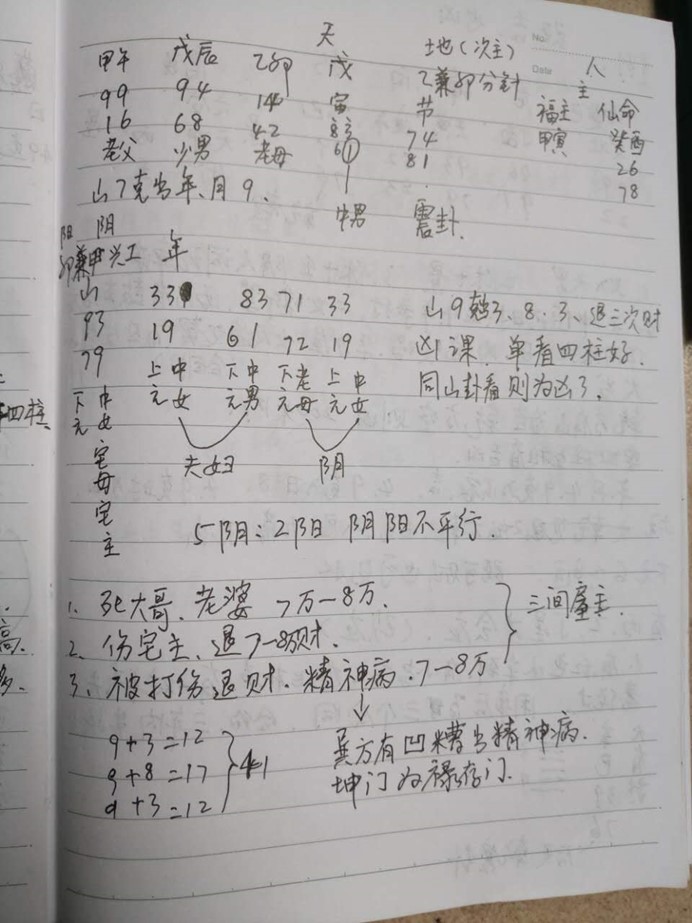 天 地(次主) 人
No.
Date
甲午 戊辰 乙卯 戊寅 乙兼卯分針 主
99 94 14 83 节 福主 仙命
16 68 42 61 74 甲寅 癸酉
老父 少男 老母 81 26
中男 78
山7克当年、月9、 震卦.
阳 阴
卯兼甲兴工 年
山 33 83 71 33 山9克3、8、3、退三次财
93 19 61 72 19 凶课、单看四柱好、
79 上元 中女 下元 中男 下元 老母 上元 中女 同山卦看则为凶了、
下元 中女
宅母宅主
夫妇 阴
四柱
5阴:2阳 阴阳不平行.
1、死大哥、老婆 7万—8万、
2、伤宅主、退7—8万财.
3、被打伤退财、精神病.7—8万
三间屋主.
9+3=12
9+8=17
9+3=12
41
巽方有凹槽出精神病.
坤门为禄存门.
高.
多.